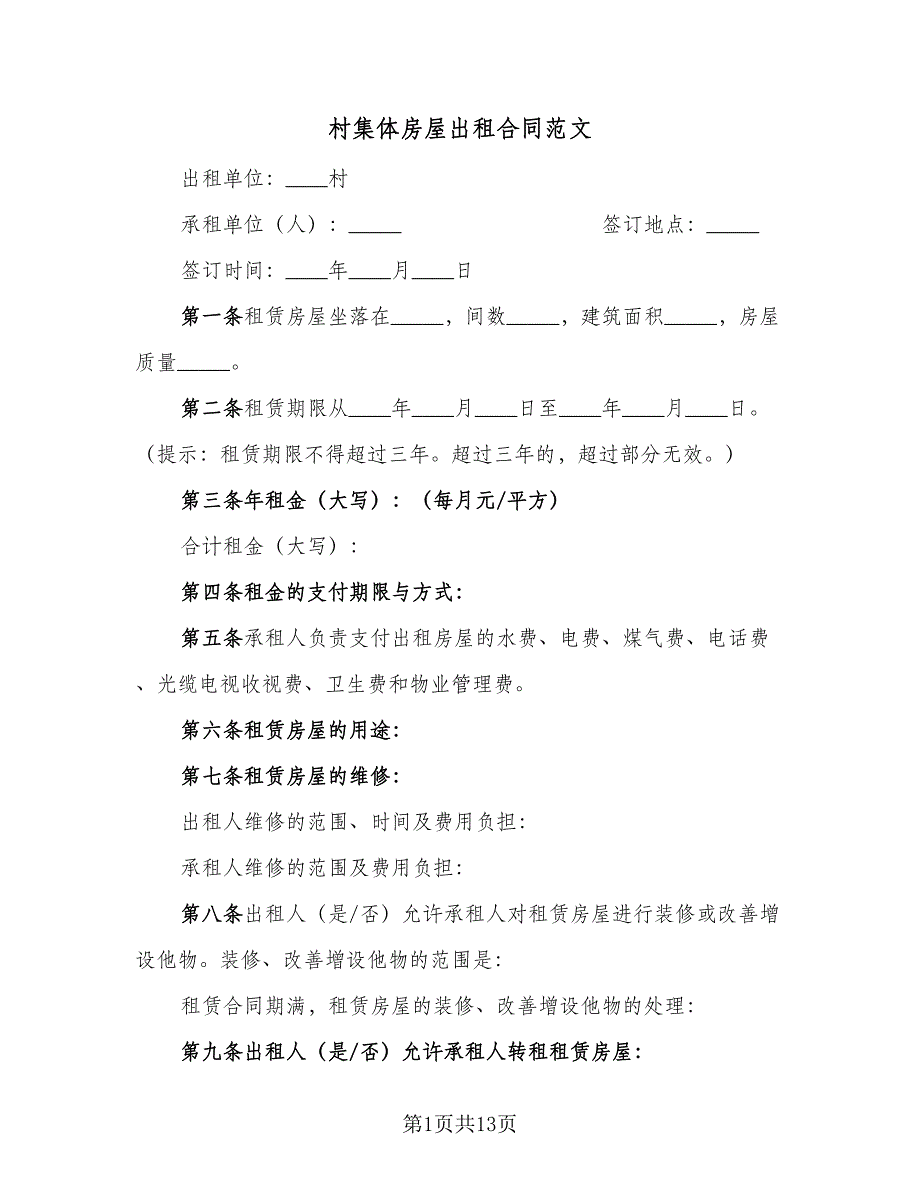 村集体房屋出租合同范文
出租单位：____村
承租单位（人）：_____ 签订地点：_____
签订时间：____年____月____日
第一条租赁房屋坐落在_____，间数_____，建筑面积_____，房屋
质量_____。
第二条租赁期限从____年____月____日至____年____月____日。
（提示：租赁期限不得超过三年。超过三年的，超过部分无效。）
第三条年租金（大写）：（每月元/平方）
合计租金（大写）：
第四条租金的支付期限与方式：
第五条承租人负责支付出租房屋的水费、电费、煤气费、电话费
、光缆电视收视费、卫生费和物业管理费。
第六条租赁房屋的用途：
第七条租赁房屋的维修：
出租人维修的范围、时间及费用负担：
承租人维修的范围及费用负担：
第八条出租人（是/否）允许承租人对租赁房屋进行装修或改善增
设他物。装修、改善增设他物的范围是：
租赁合同期满，租赁房屋的装修、改善增设他物的处理：
第九条出租人（是/否）允许承租人转租租赁房屋：
第1页共13页